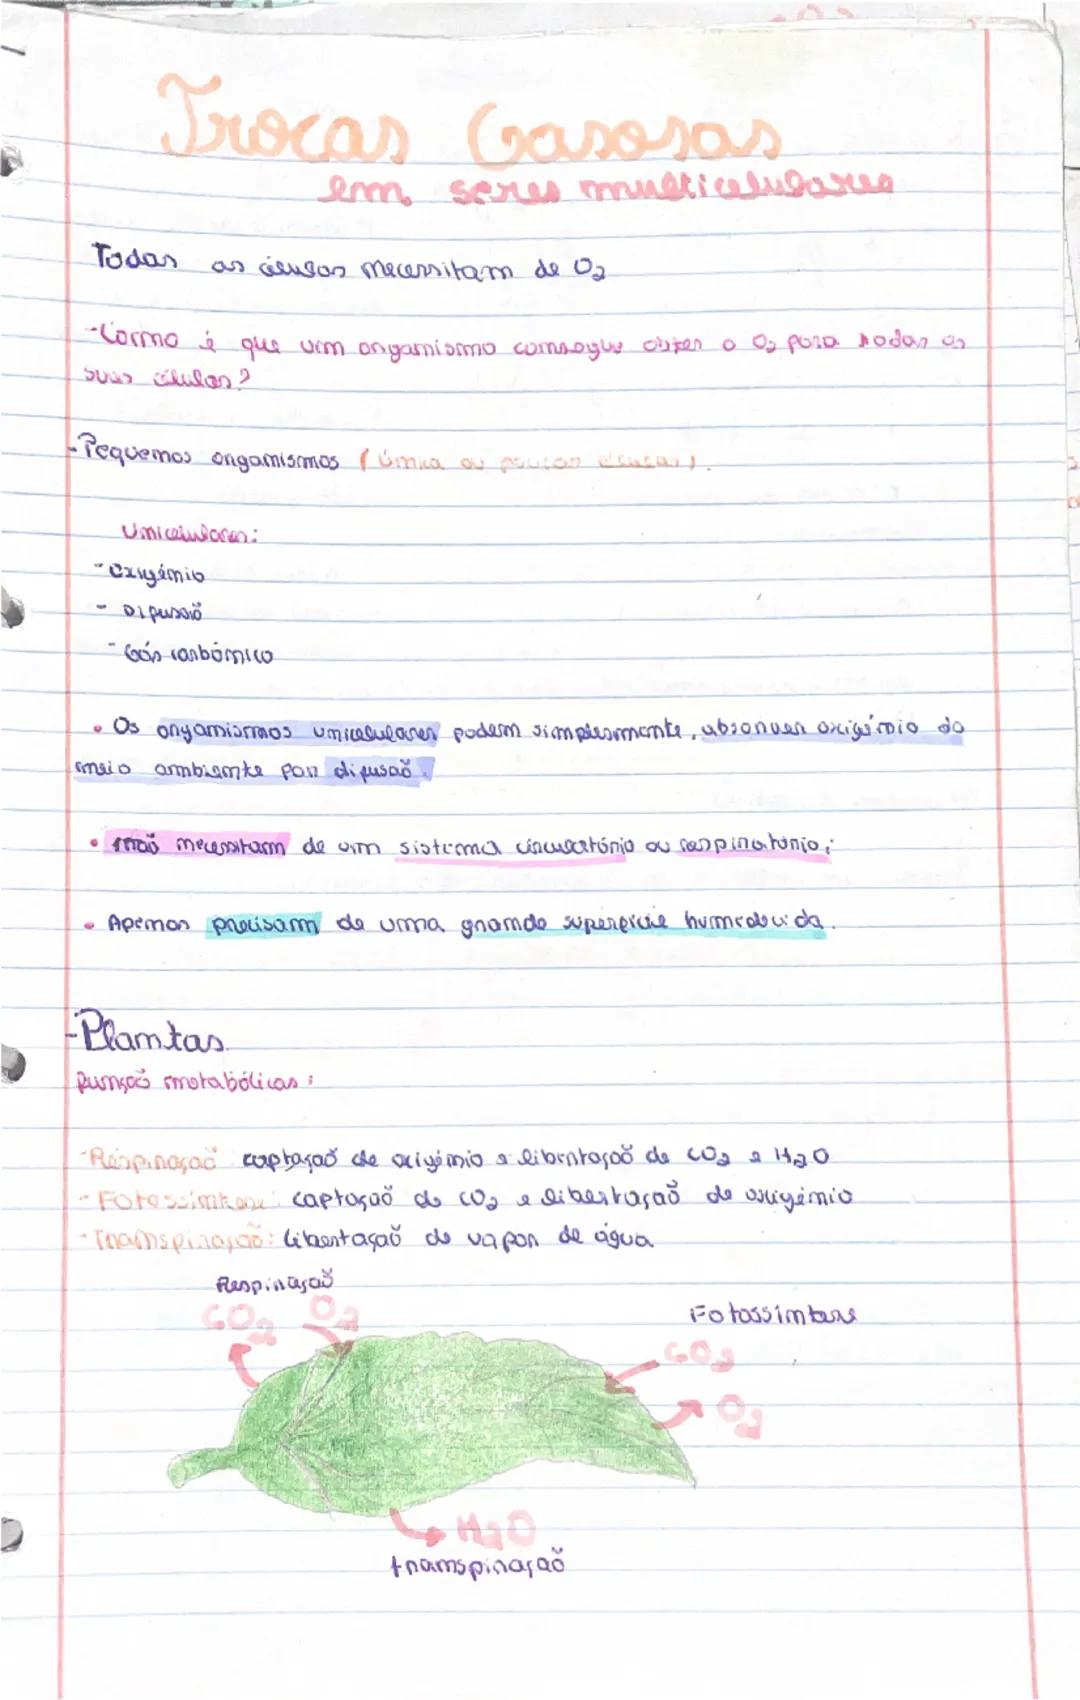 Trocas Gasosas
em seres multicelulares
Todas as células necessitam de O2
-Como é que um organismo consegue obter o O2 para todas as
suas células?
-Pequenos organismos (única ou poucas células).
Unicelulares:
- Oxigénio
- Difusão
- Gás carbónico
• Os organismos unicelulares podem simplesmente, absorver oxigénio do
meio ambiente por difusão.
• não necessitam de um sistema circulatório ou respiratório;
• Apenas precisam de uma grande superfície humedecida.
-Plantas
função metabólicas:
-Respiração captação de oxigénio e libertação de CO2 e H2O
-Fotossíntese: captação de CO2 e libertação de oxigénio
-Transpiração: libertação de vapor de água
Respiração
CO2 O2
Fotossíntese
CO2
O2
H2O
transpiração